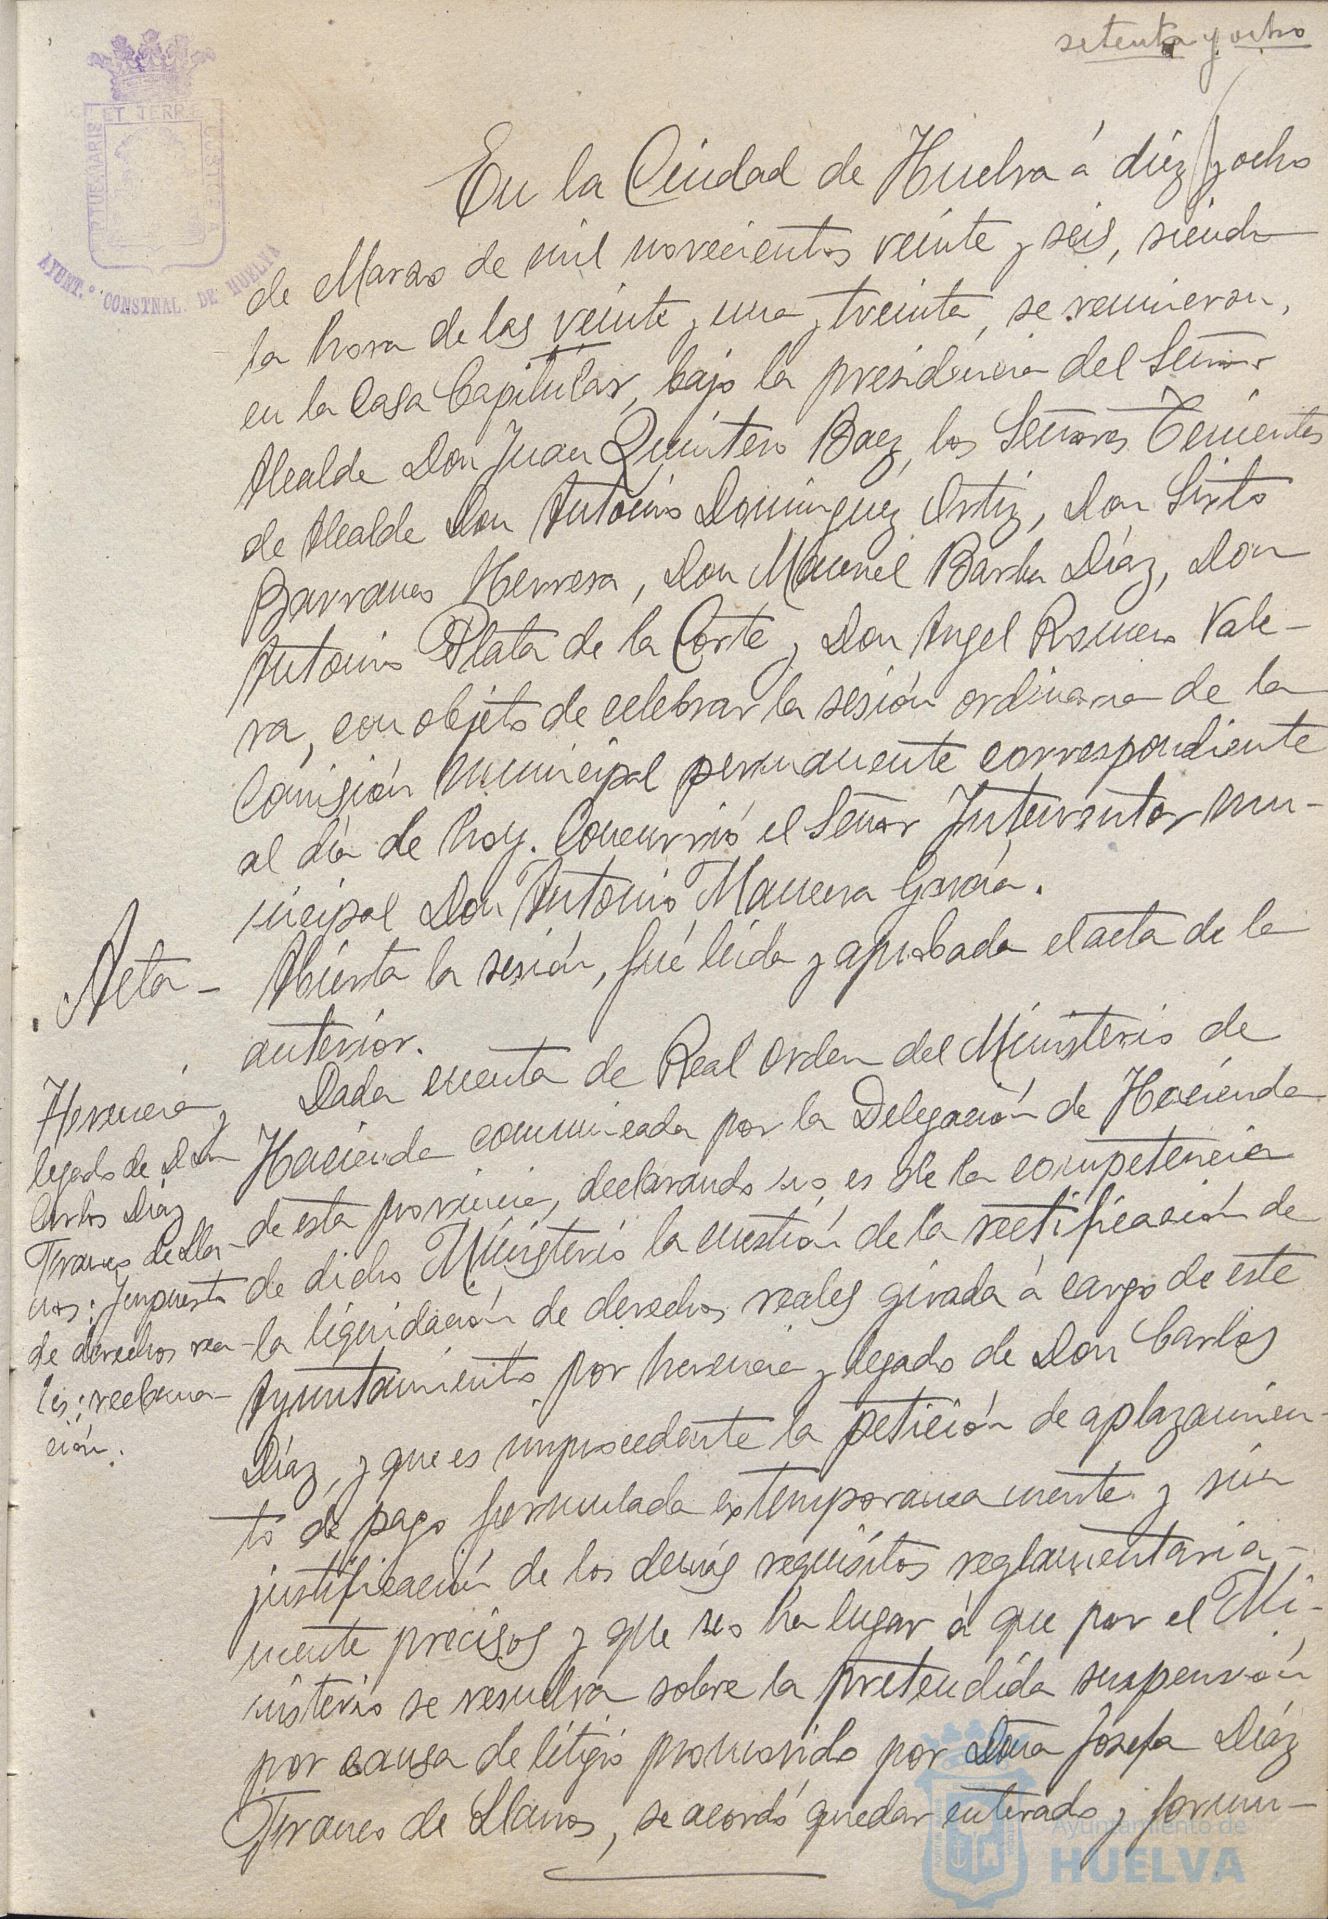 setenta y ocho
PORTUS MARIS ET TERRÆ CUSTODIA
AYUNT.º CONSTNAL. DE HUELVA
En la Ciudad de Huelva á diez y ocho
de Marzo de mil novecientos veinte y seis, siendo
la hora de las veinte y una y treinta, se reunieron,
en la Casa Capitular, bajo la presidencia del Señor
Alcalde Don Juan Quintero Baez, los Señores Tenientes
de Alcalde Don Antonio Dominguez Ortiz, Don Sixto
Barranco Herrera, Don Manuel Barba Díaz, Don
Antonio Plata de la Corte y Don Angel Romero Vale-
ra, con objeto de celebrar la sesión ordinaria de la
Comisión municipal permanente correspondiente
al día de hoy. Concurrió el Señor Interventor mu-
nicipal Don Antonio Mancera García.
Acta -
Abierta la sesión, fué leida y aprobada el acta de la
anterior.
Herencia y
legado de Don
Carlos Díaz
Franco de Lla-
nos: Impuesto
de derechos rea-
les: reclama-
ción.
Dada cuenta de Real Orden del Ministerio de
Hacienda comunicada por la Delegación de Hacienda
de esta provincia, declarando no es de la competencia
de dicho Ministerio la cuestión de la rectificación de
la liquidación de derechos reales girada á cargo de este
Ayuntamiento por herencia y legado de Don Carlos
Díaz, y que es improcedente la petición de aplazamien-
to de pago formulada extemporaneamente y sin
justificación de los demás requisitos reglamentaria-
mente precisos y que no ha lugar á que por el Mi-
nisterio se resuelva sobre la pretendida suspensión
por causa de litigio promovido por Doña Josefa Díaz
Franco de Llanos, se acordó quedar enterado y formu-
Ayuntamiento de
HUELVA